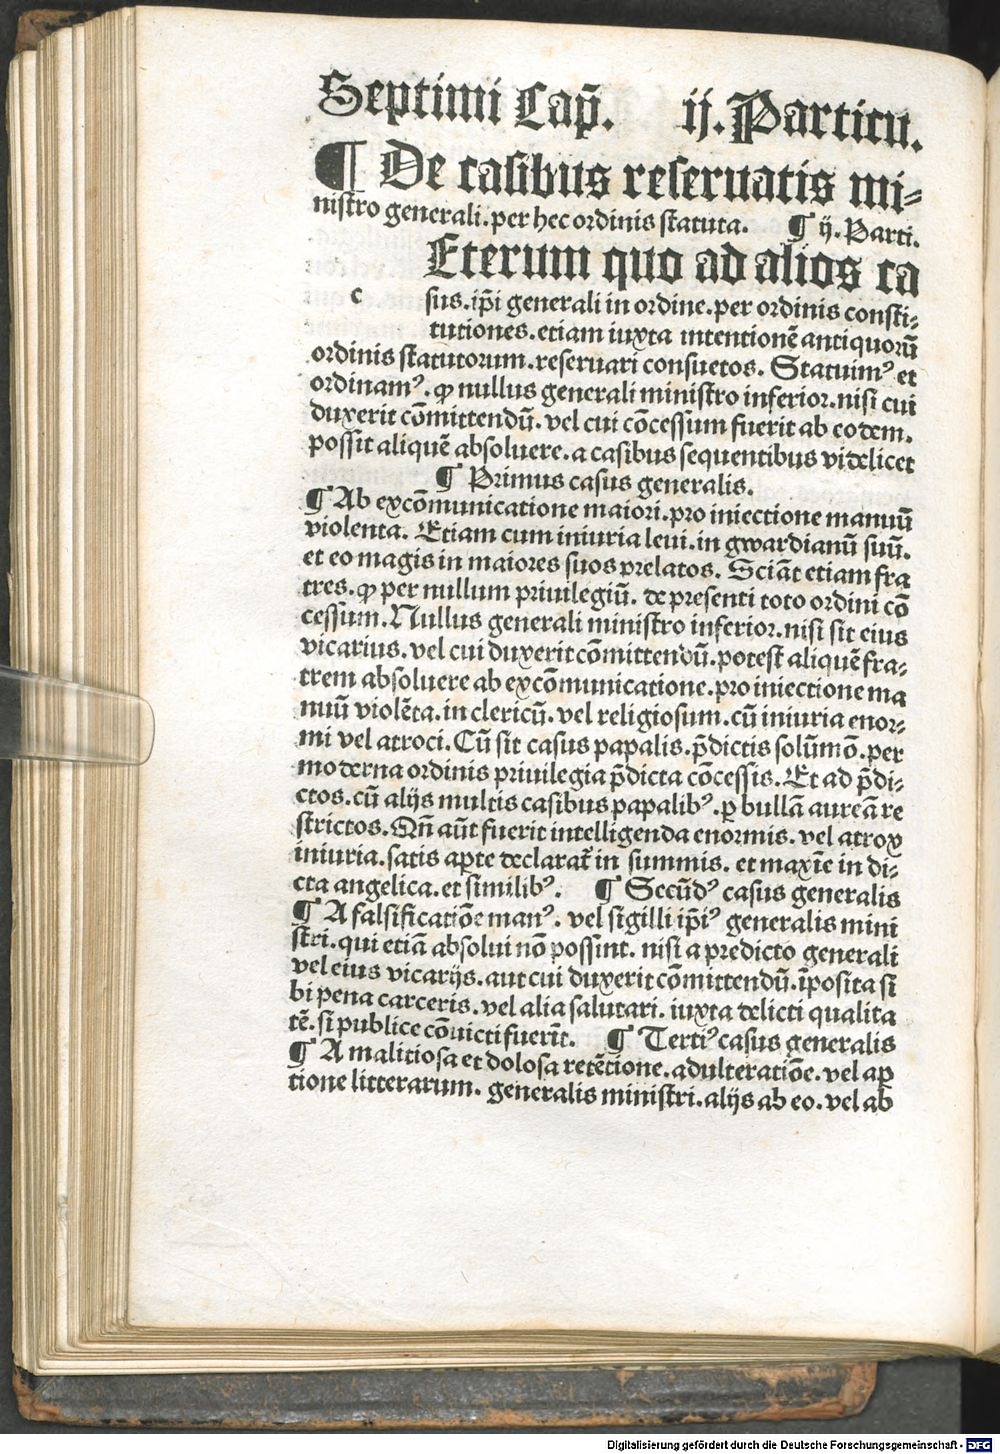 Septimi Cap̃. ij. Particu.
¶ De casibus reseruatis mi⸗
nistro generali. per hec ordinis statuta. ¶ ij. Parti.
Eterum quo ad alios ca
c sus. ip̃i generali in ordine. per ordinis consti⸗
tutiones. etiam iuxta intentionẽ antiquorũ
ordinis statutorum. reseruari consuetos. Statuimꝰ et
ordinamꝰ. ꝙ nullus generali ministro inferior. nisi cui
duxerit cõmittendũ. vel cui cõcessum fuerit ab eodem.
possit aliquẽ absoluere. a casibus sequentibus videlicet
¶ Primus casus generalis.
¶ Ab excõmunicatione maiori. pro iniectione manuũ
violenta. Etiam cum iniuria leui. in gwardianũ suũ.
et eo magis in maiores suos prelatos. Sciãt etiam fra
tres. ꝙ per nullum priuilegiũ. de presenti toto ordini cõ
cessum. Nullus generali ministro inferior. nisi sit eius
vicarius. vel cui duxerit cõmittendũ. potest aliquẽ fra⸗
trem absoluere ab excõmunicatione. pro iniectione ma
nuũ violẽta. in clericũ. vel religiosum. cũ iniuria enor⸗
mi vel atroci. Cũ sit casus papalis. p̃dictis solũmõ. per
moderna ordinis priuilegia p̃dicta cõcessis. Et ad p̃di⸗
ctos. cũ alijs multis casibus papalibꝰ. ꝑ bullã aureã re
strictos. Qñ aũt fuerit intelligenda enormis. vel atrox
iniuria. satis aꝑte declarat᷑ in summis. et maxĩe in di⸗
cta angelica. et similibꝰ. ¶ Secũdꝰ casus generalis
¶ A falsificatiõe manꝰ. vel sigilli ip̃iꝰ generalis mini
stri. qui etiã absolui nõ possint. nisi a predicto generali
vel eius vicarijs. aut cui duxerit cõmittendũ. ĩposita si
bi pena carceris. vel alia salutari. iuxta delicti qualita
tẽ. si publice cõuicti fuerĩt. ¶ Tertiꝰ casus generalis
¶ A malitiosa et dolosa retẽtione. adulteratiõe. vel aꝑ
tione litterarum. generalis ministri. alijs ab eo. vel ab
Digitalisierung gefördert durch die Deutsche Forschungsgemeinschaft - DFG